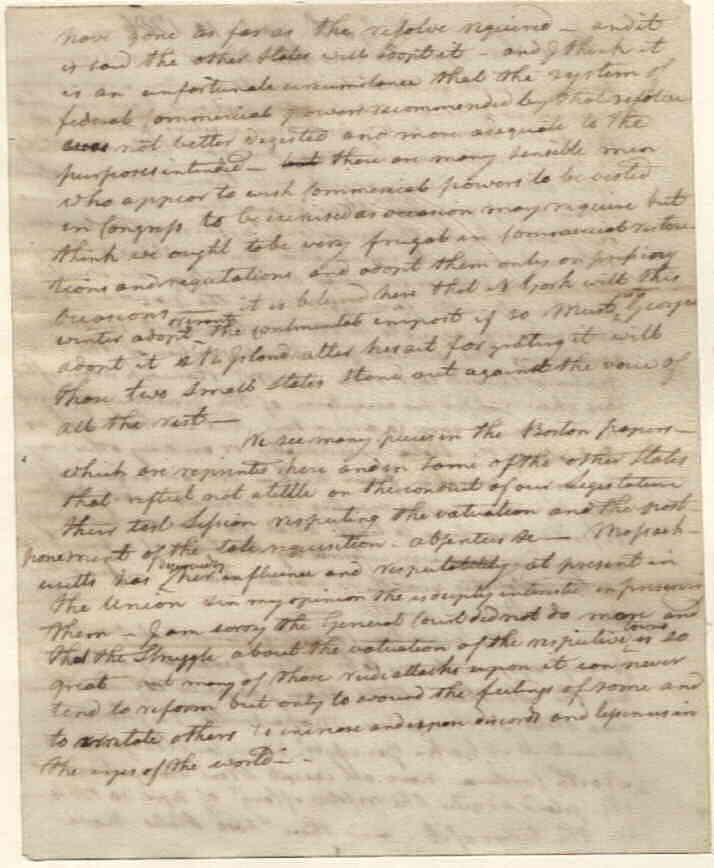 have gone as far as the resolve required – and it
is said the other States will adopt it – and I think it
is an unfortunate circumstance that the system of
federal Commercial powers recommended by that resolve
was not better digested and more adequate to the
purposes intended – but there are many sensible men
who appear to wish Commercial powers to be vested
in Congress to be exercised as occasion may require but
think we ought to be very frugal in Commercial restric
tions and regulations and adopt them only on pressing
occasions it is believed here that N York will this
winter adopt the continental impost if so must Georgia
adopt it & R Island alter her act for getting it will
those two Small States stand out against the voice of
all the rest –
We see many pieces in the Boston papers –
which are reprinted here and in some of the other States
that reflect not a little on the conduct of our Legislature
their last Session respecting the valuation and the post
ponement of the late requisition – absentees &c – Massach
usetts has her influence and respectability at present in
the Union & in my opinion she is deeply interested in preserving
them – I am sorry the General Court did not do more and
that the Struggle about the valuation of the respective towns is so
great but many of those rude attacks upon it can never
tend to reform but only to wound the feelings of some and
to irritate others to increase and open discord and lessen us in
the eyes of the world –